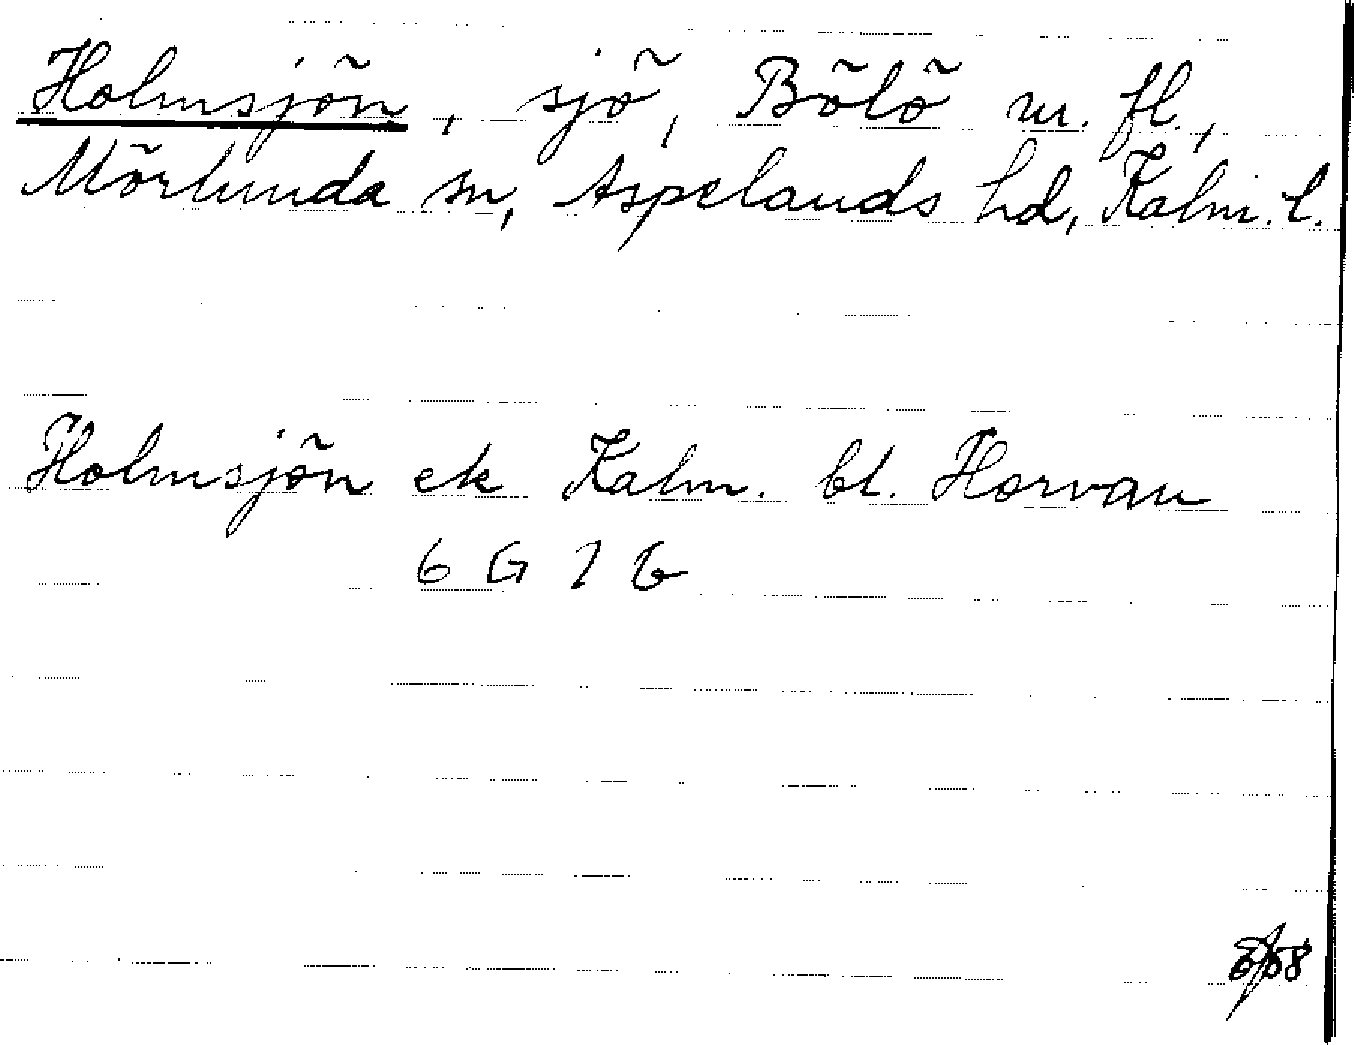 Holmsjön, sjö, Bölö m. fl.,
Mörlunda sn, Aspelands hd, Kalm. l.
Holmsjön ek Kalm. bl. Horvan
6 G 7 b